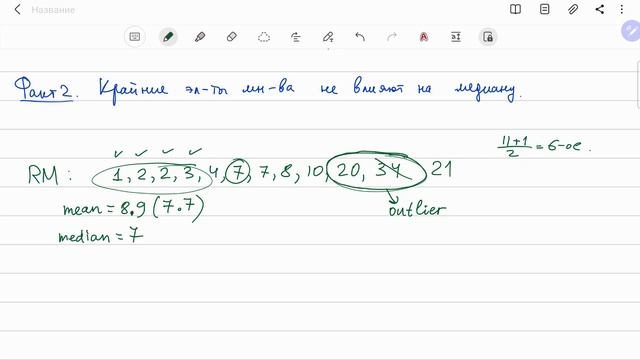 Название
Факт 2. Крайние эл-ты мн-ва не влияют на медиану.
11+1/2 = 6-ое.
RM: 1, 2, 2, 3, 4, 7, 7, 8, 10, 20, 34 21
mean = 8.9 (7.7)
outlier
median = 7